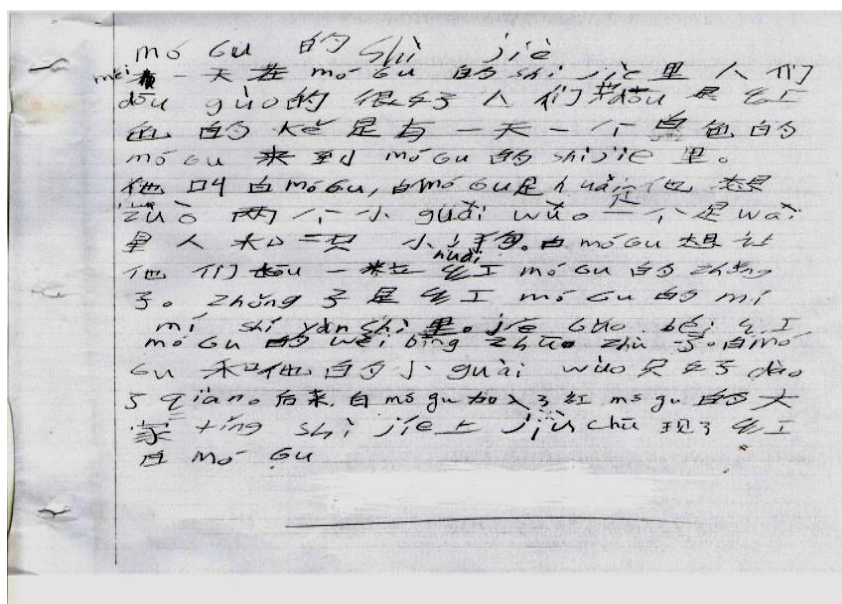 mó Gu 的 Shì jiè
měi 一天在 mó Gu 的 shì jiè 里人们
dōu guò的很好人们 dōu 是红
色的 Kě 是有一天一个白色的
mó Gu 来到 mó Gu 的 shì jiè 里。
他叫白 mó Gu, 白 mó Gu 是 huài 他想
zuò 两个小 guài wù 一个是 wài
星人和一只小狗。白 mó Gu 想让
他们 tōu 一粒 huài 红 mó Gu 的 zhǒng
子。zhǒng 子是红 mó Gu 的 mì
mì shí yàn shì 里。jié Guǒ bèi 红
mó Gu 的 wèi bīng zhuō zhù 了。白 mó
Gu 和他的小 guài wù 只好 dào
了 qiàn。后来,白 mó gu 加入了红 mó gu 的大
家 tíng shì jiè 上 jiù chū 现了红
白 mó Gu